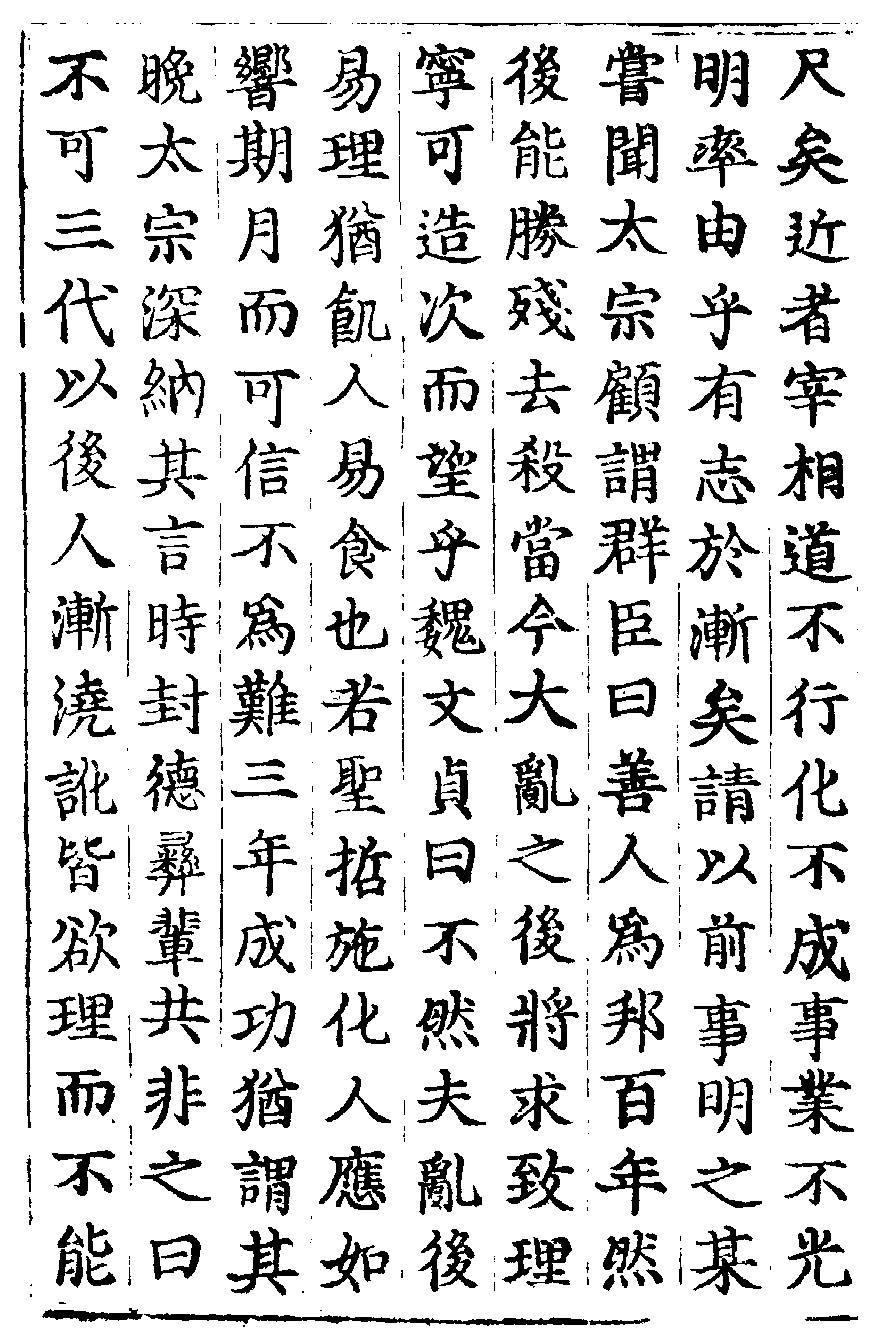 尺矣近者宰相道不行化不成事業不光
明率由乎有志於漸矣請以前事明之某
嘗聞太宗顧謂群臣曰善人爲邦百年然
後能勝殘去殺當今大亂之後將求致理
寧可造次而望乎魏文貞曰不然夫亂後
易理猶飢人易食也若聖哲施化人應如
響期月而可信不爲難三年成功猶謂其
晚太宗深納其言時封德彝輩共非之曰
不可三代以後人漸澆訛皆欲理而不能